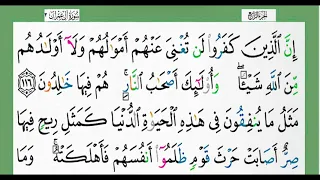 سُورَةُ آلِ عِمْرَانَ ٣ الجُزْءُ الرَّابِعُ
إِنَّ ٱلَّذِينَ كَفَرُوا۟ لَن تُغْنِىَ عَنْهُمْ أَمْوَٰلُهُمْ وَلَآ أَوْلَـٰدُهُم
مِّنَ ٱللَّهِ شَيْـًٔا ۖ وَأُو۟لَـٰٓئِكَ أَصْحَـٰبُ ٱلنَّارِ ۚ هُمْ فِيهَا خَـٰلِدُونَ ١١٦
مَثَلُ مَا يُنفِقُونَ فِى هَـٰذِهِ ٱلْحَيَوٰةِ ٱلدُّنْيَا كَمَثَلِ رِيحٍ فِيهَا
صِرٌّ أَصَابَتْ حَرْثَ قَوْمٍ ظَلَمُوٓا۟ أَنفُسَهُمْ فَأَهْلَكَتْهُ ۚ وَمَا